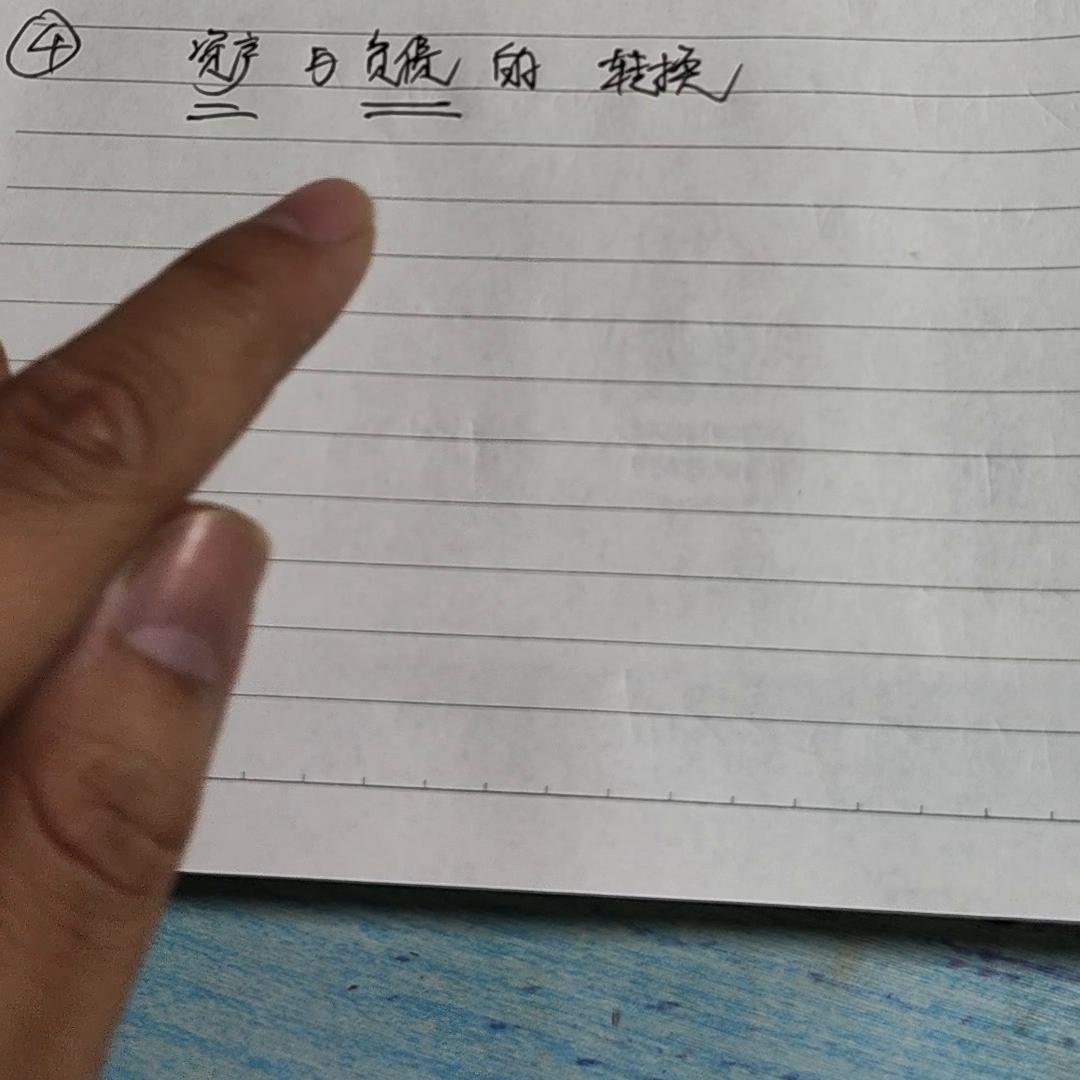 ④ 资产与负债的转换